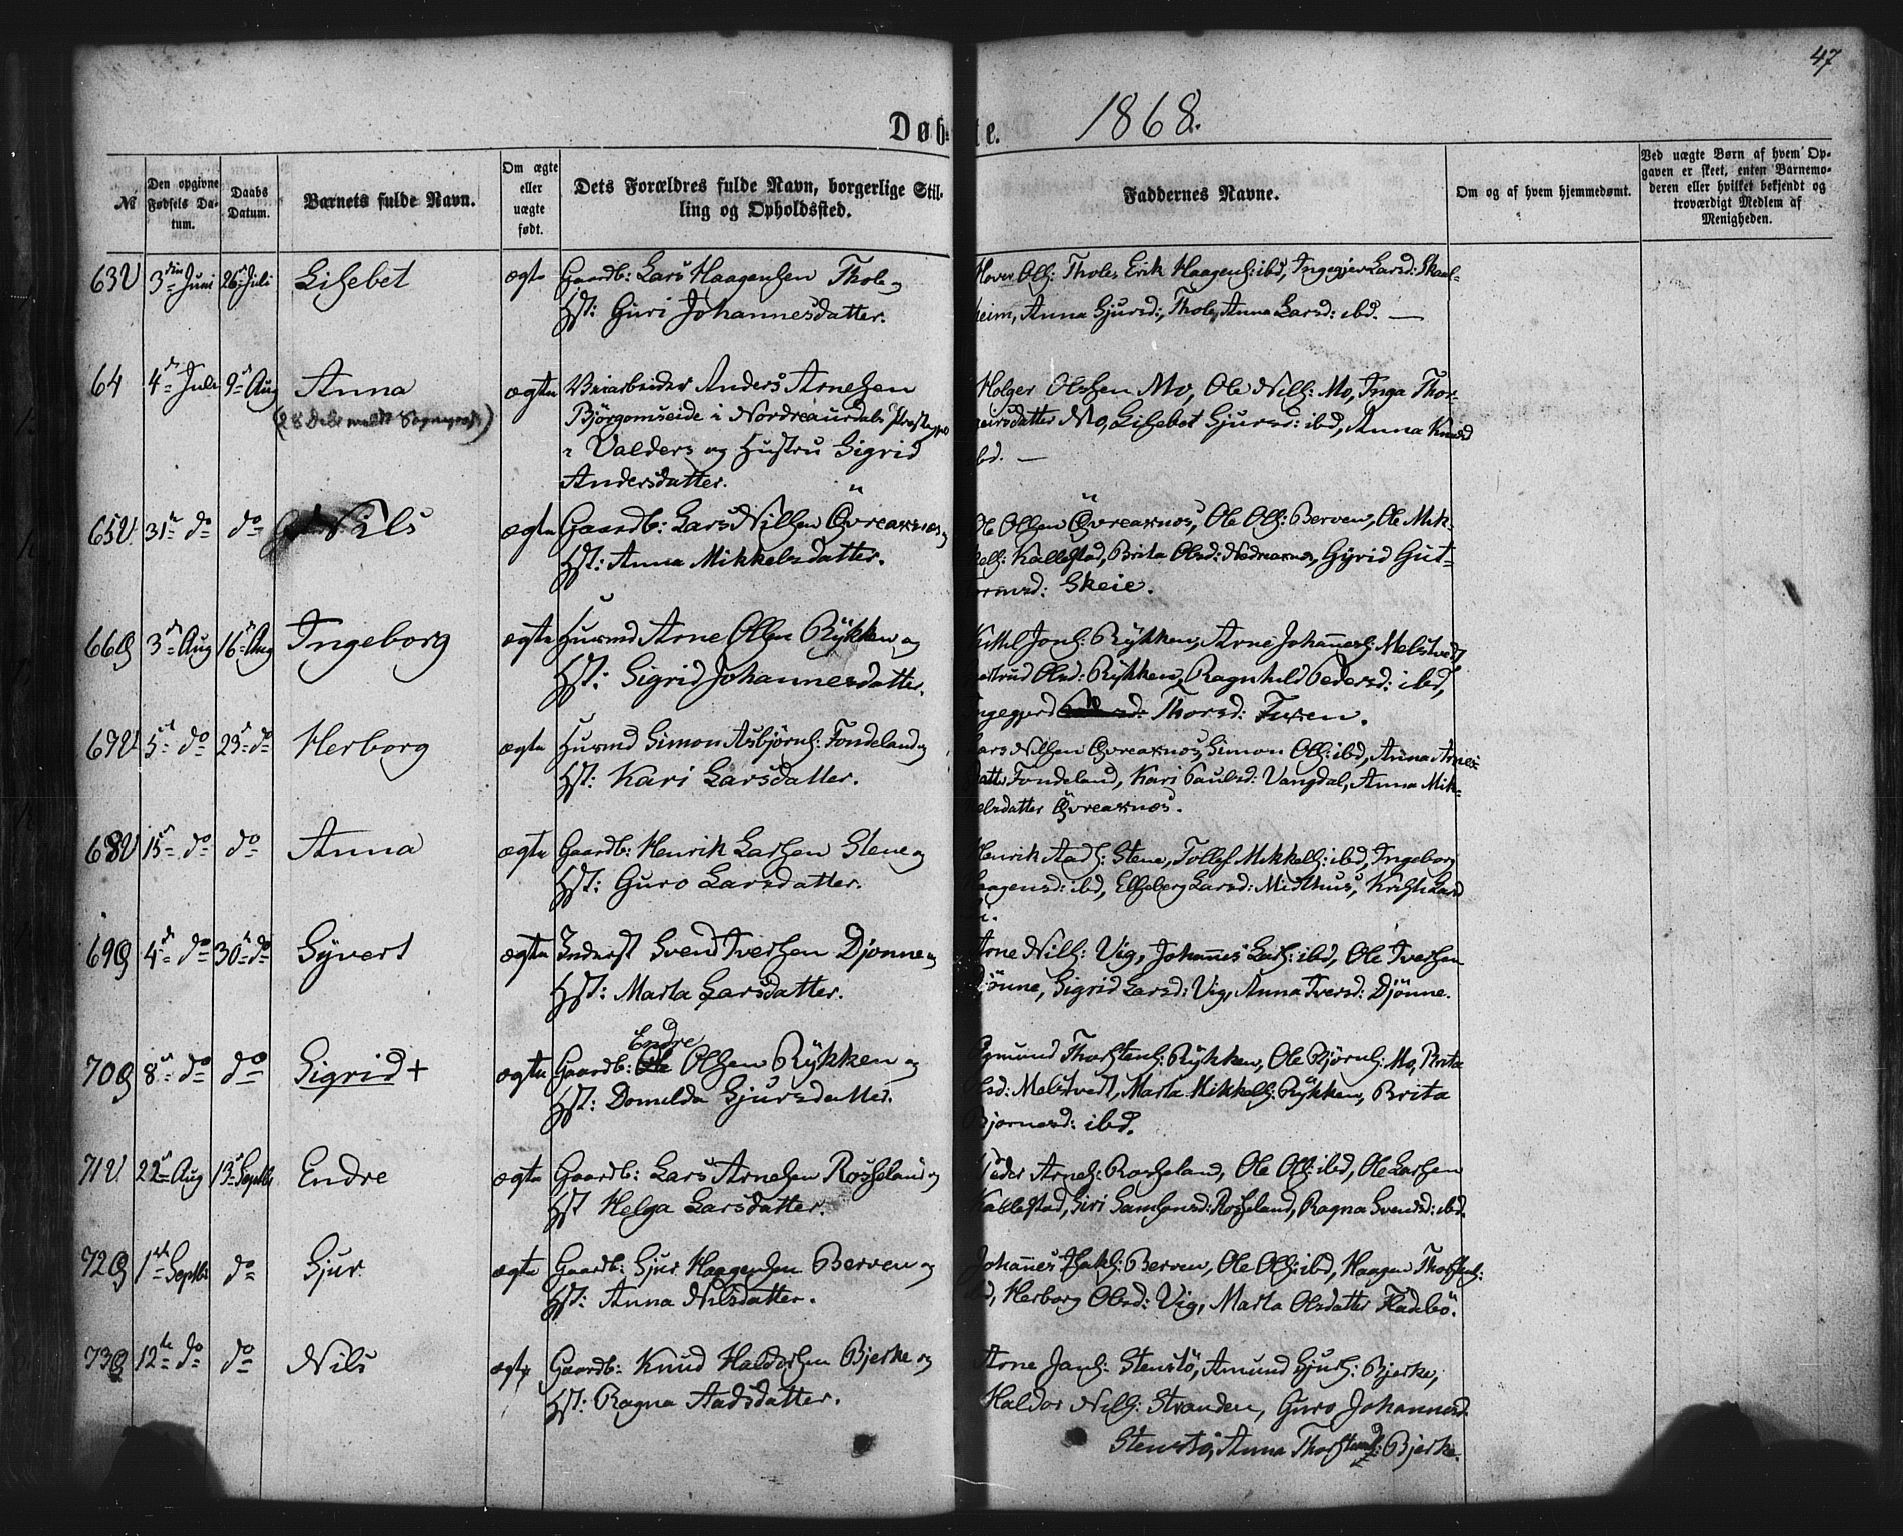 47
Døbte. 1868.
№
Den opgivne Fødsels Datum.
Daabs Datum.
Barnets fulde Navn.
Om ægte eller uægte født.
Dets Forældres fulde Navn, borgerlige Stilling og Opholdssted.
Faddernes Navne.
Om og af hvem hjemmedøbt.
Ved uægte Børn af hvem Opgaven er skeet, enten Barnemoderen eller hvilket bekjendt og troværdigt Medlem af Menigheden.
63 V 3die Juni 26 Juli Lisebet ægte Gaardb: Lars Haagensen Thole og Hst: Guri Johannesdatter.
Haver Ols: Thole, Erik Haagens: ibd, Ingegjer Larsd: Skaalheim, Anna Sjursd:, Thole, Anna Larsd: ibd. —
64 4de Juli 9de Aug Anna ægte Veiarbeider Anders Arnesen
Bjørgomseide i Nordreaurdals Præstegjd
i Valders og Hustru Sigrid
Andersdatter.
Holger Olsen Mo, Ole Nils: Mo, Inga Thor-
geirsdatter Mo, Lisebet Sjursd: ibd, Anna Knudsd
ibd. —
65 V. 31te do do Nils ægte Gaardb: Lars Nilsen Øvreaxnes og
Hst: Anna Mikkelsdatter.
Ole Olsen Øvreaxnes, Ole Ols: Berven, Ole Mik-
kels: Kallestad, Brita Olsd: Nedreaxnes, Gyrid Gut-
tormsd: Skeie.
66 G 3de Aug 16de Aug Ingeborg ægte Husmd Arne Olsen Rykken og
Hst: Sigrid Johannesdatter.
Kittel Jons: Rykken, Arne Johannes: Melstvedt,
Olsd: Rykken, Ragnhild Pedersd: ibd,
Ingegjerd Thorsd: Fuxen.
67 V 5te do 23de do Herborg ægte Husmd Simon Asbjørns: Fondeland og
Hst: Kari Larsdatter.
Lars Nilsen Øvreaxnes, Simon Ols: ibd, Anna Arnes-
datter Fondeland, Kari Paulsd: Vangdal, Anna Mik-
kelsdatter Øvreaxnes.
68 V 15de do do Anna ægte Gaardb: Henrik Larsen Stene og
Hst: Guro Larsdatter.
Henrik Aads: Stene, Tollef Mikkels: ibd, Ingeborg
Haagensd: ibd, Elseberg Larsd: Midthus,
69 G 4de do 30te do Syvert ægte Inderst Svend Iversen Djønne og
Hst: Marta Larsdatter.
Arne Nils: Vig, Johannes Lars: ibd, Ole Iversen
Djønne, Sigrid Larsd: Vig, Anna Iversd: Djønne.
70 G 8de do do Sigrid + ægte Gaardb: Endre Olsen Rykken og
Hst: Domelda Sjursdatter.
Ogmund Thorstens: Rykken, Ole Bjørns: Mo, Brita
Olsd: Melstvedt, Marta Mikkels: Rykken, Brita
Bjørnesd: ibd.
71 V 22de Aug 13de Septbr Endre ægte Gaardb: Lars Arnesen Rosseland og
Hst Helga Larsdatter.
Peder Arnes: Rosseland, Ole Ols: ibd, Ole Larsen
Kallestad, Siri Samsonsd: Rosseland, Ragna Svendsd: ibd.
72 G 1ste Septbr do Sjur ægte Gaardb: Sjur Haagensen Berven og
Hst: Anna Nilsdatter.
Johannes Isaks: Berven, Ole Ols: ibd, Haagen Thorstens:
ibd, Herborg Olsd: Vig, Marta Olsdatter Flådebø.
73 G 12te do do Nils ægte Gaardb: Knud Haldorsen Bjerke og
Hst: Ragna Aadsdatter.
Arne Jans: Stenstø, Amund Sjurs: Bjerke,
Haldor Nils: Stranden, Guro Johannesd
Stenstø, Anna Thorstensd: Bjerke.